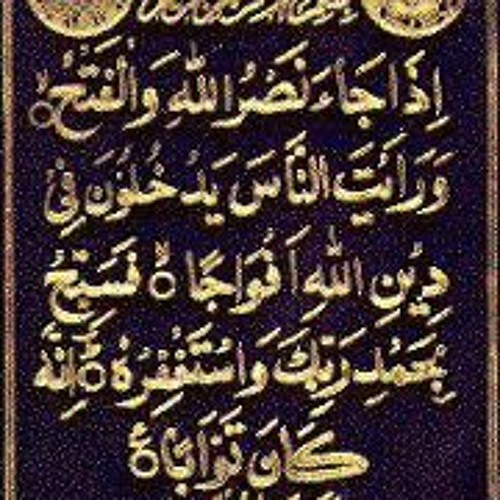 إِذَا جَاءَ نَصْرُ اللَّهِ وَالْفَتْحُ
وَرَأَيْتَ النَّاسَ يَدْخُلُونَ فِي
دِينِ اللَّهِ أَفْوَاجًا فَسَبِّحْ
بِحَمْدِ رَبِّكَ وَاسْتَغْفِرْهُ إِنَّهُ
كَانَ تَوَّابًا